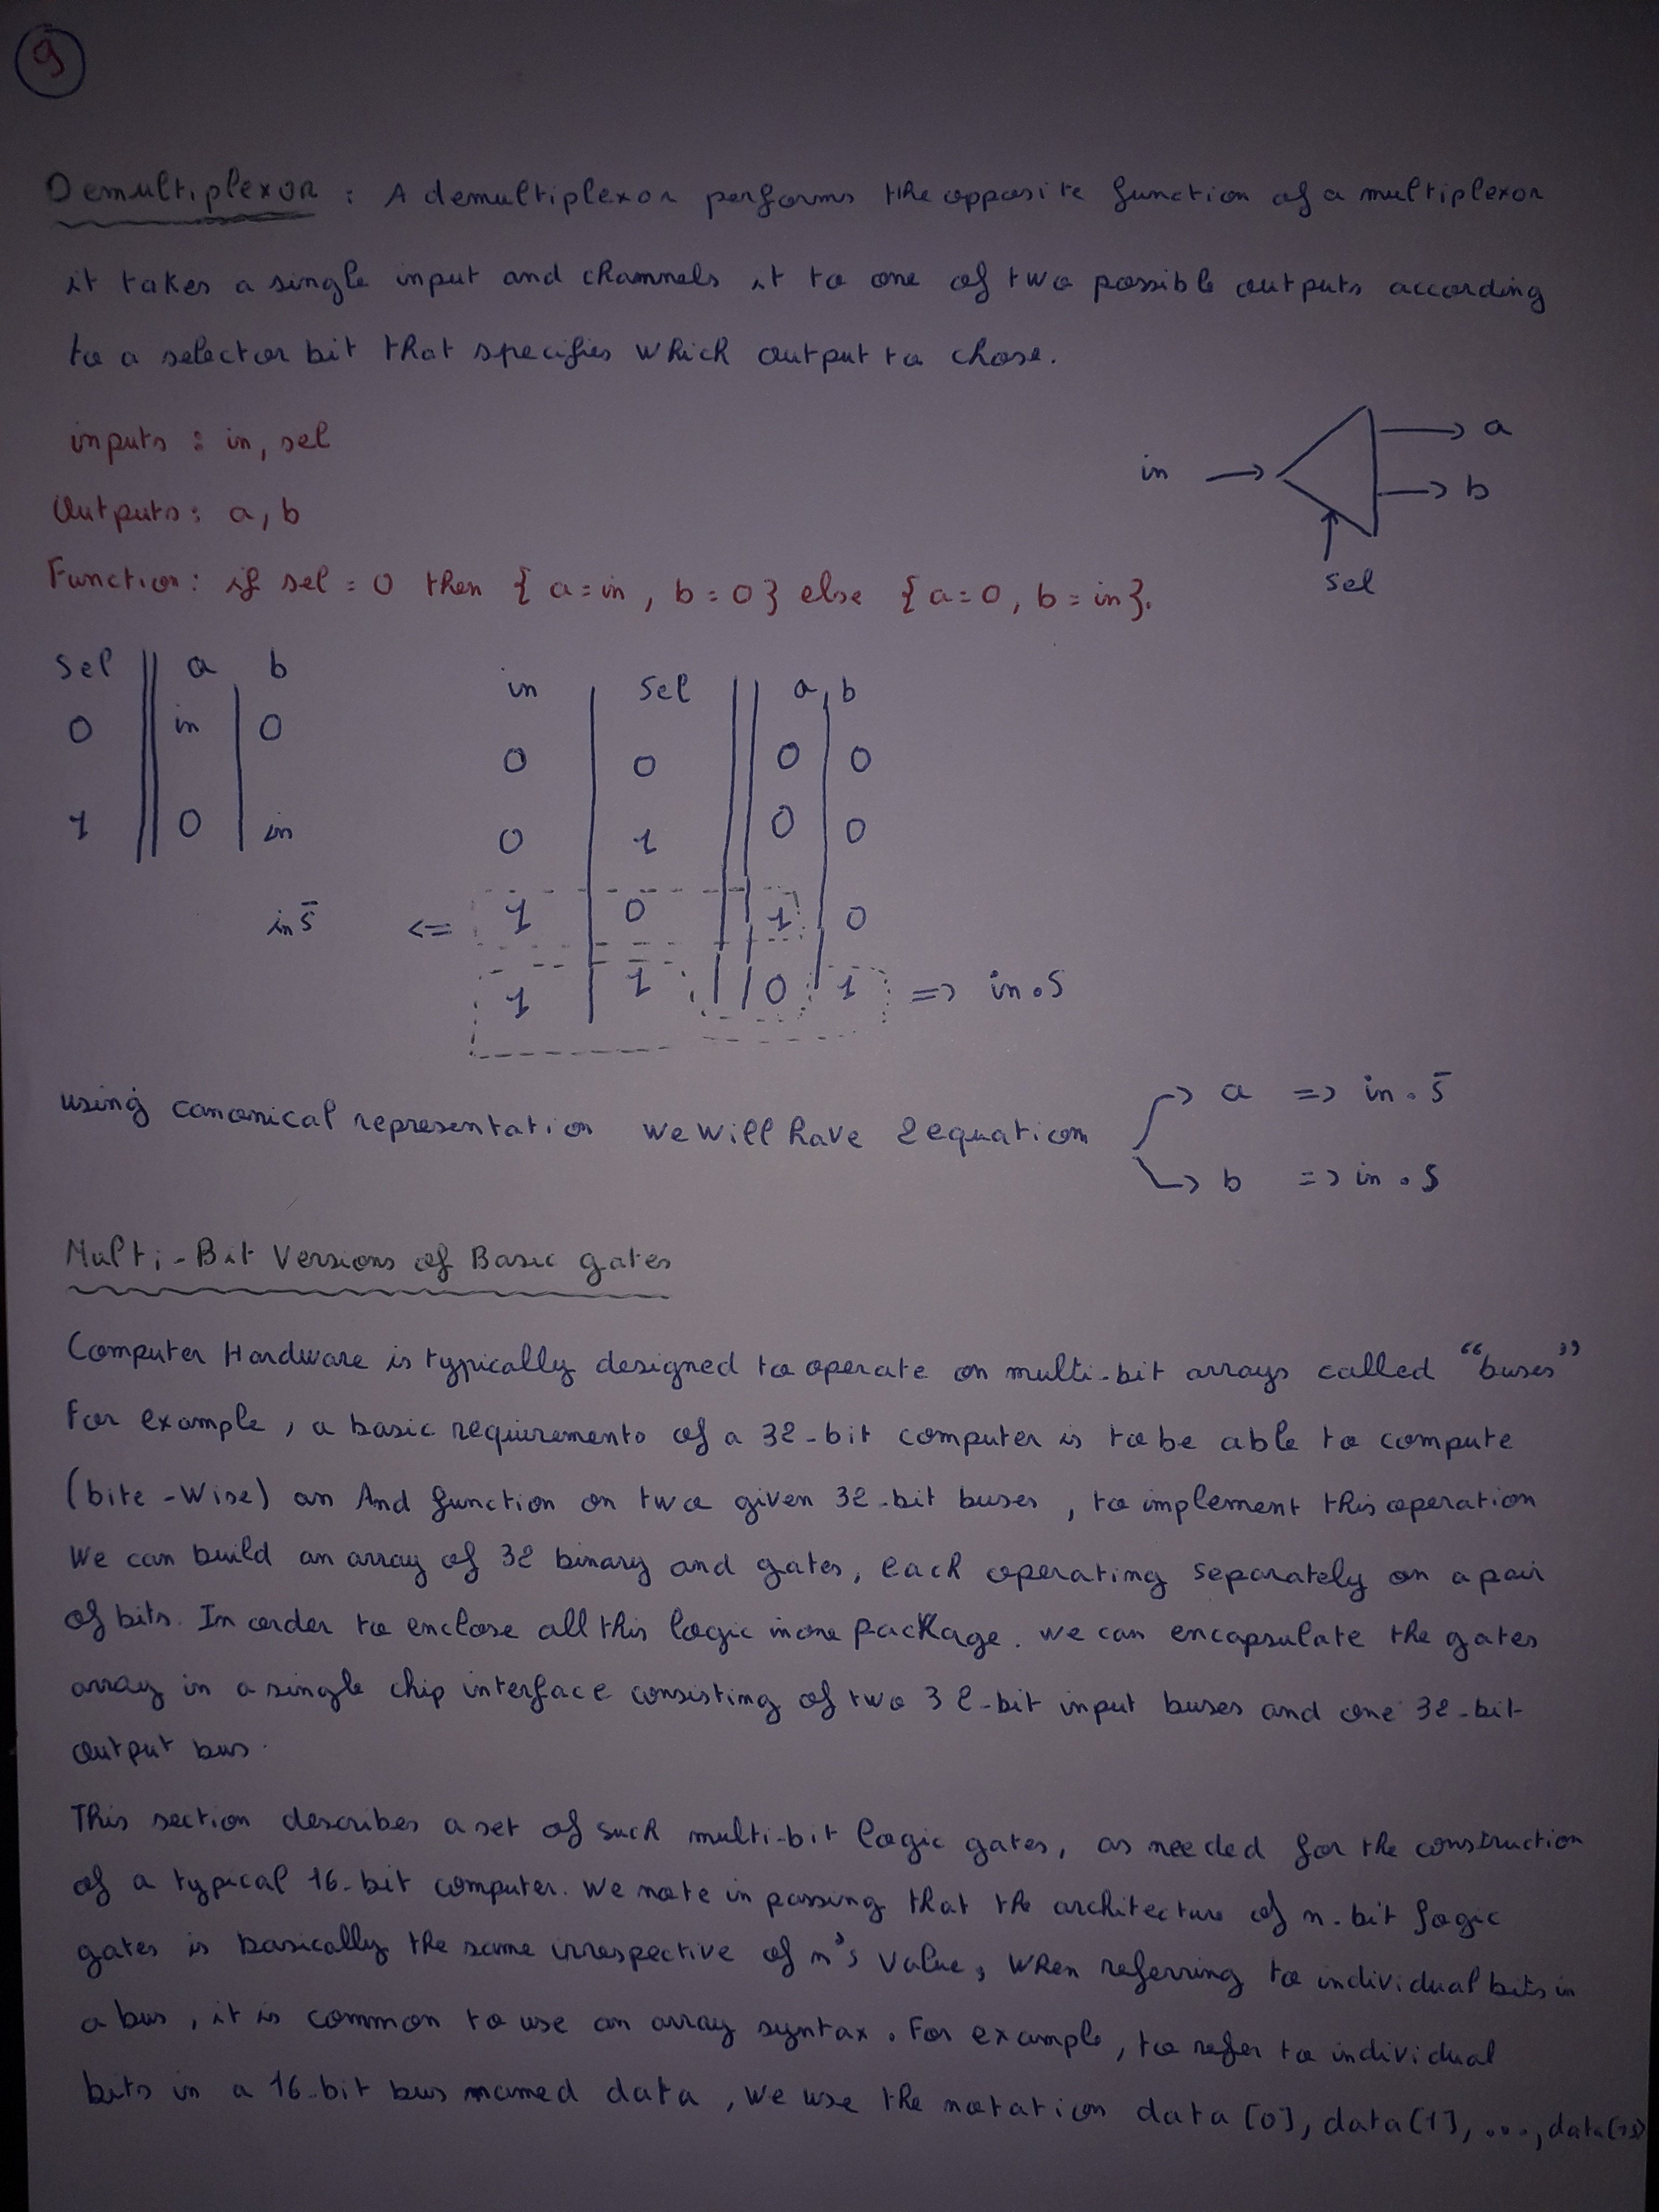 9
Demultiplexor : A demultiplexor performs the opposite function of a multiplexor
it takes a single input and channels it to one of two possible outputs according
to a selector bit that specifies which output to chose.
inputs : in, sel
Outputs : a, b
Function : if sel = 0 then { a = in , b = 0 } else { a = 0, b = in }.
in → a
→ b
sel
sel || a | b
0 || in | 0
1 || 0 | in
in | sel || a | b
0 | 0 || 0 | 0
0 | 1 || 0 | 0
in s̄ <= 1 | 0 || 1 | 0
1 | 1 || 0 | 1 => in . s
using canonical representation we will have 2 equation → a => in . s̄
→ b => in . s
Multi-Bit Versions of Basic gates
Computer Hardware is typically designed to operate on multi-bit arrays called “buses”
For example, a basic requirements of a 32-bit computer is to be able to compute
(bite-wise) an And function on two given 32-bit buses, to implement this operation
we can build an array of 32 binary and gates, each operating separately on a pair
of bits. In order to enclose all this logic in one package. we can encapsulate the gates
array in a single chip interface consisting of two 32-bit input buses and one 32-bit
output bus.
This section describes a set of such multi-bit logic gates, as needed for the construction
of a typical 16-bit computer. We note in passing that the architecture of n-bit logic
gates is basically the same irrespective of n's value, when referring to individual bits in
a bus, it is common to use an array syntax. For example, to refer to individual
bits in a 16-bit bus named data, we use the notation data [0], data [1], ..., data [15]